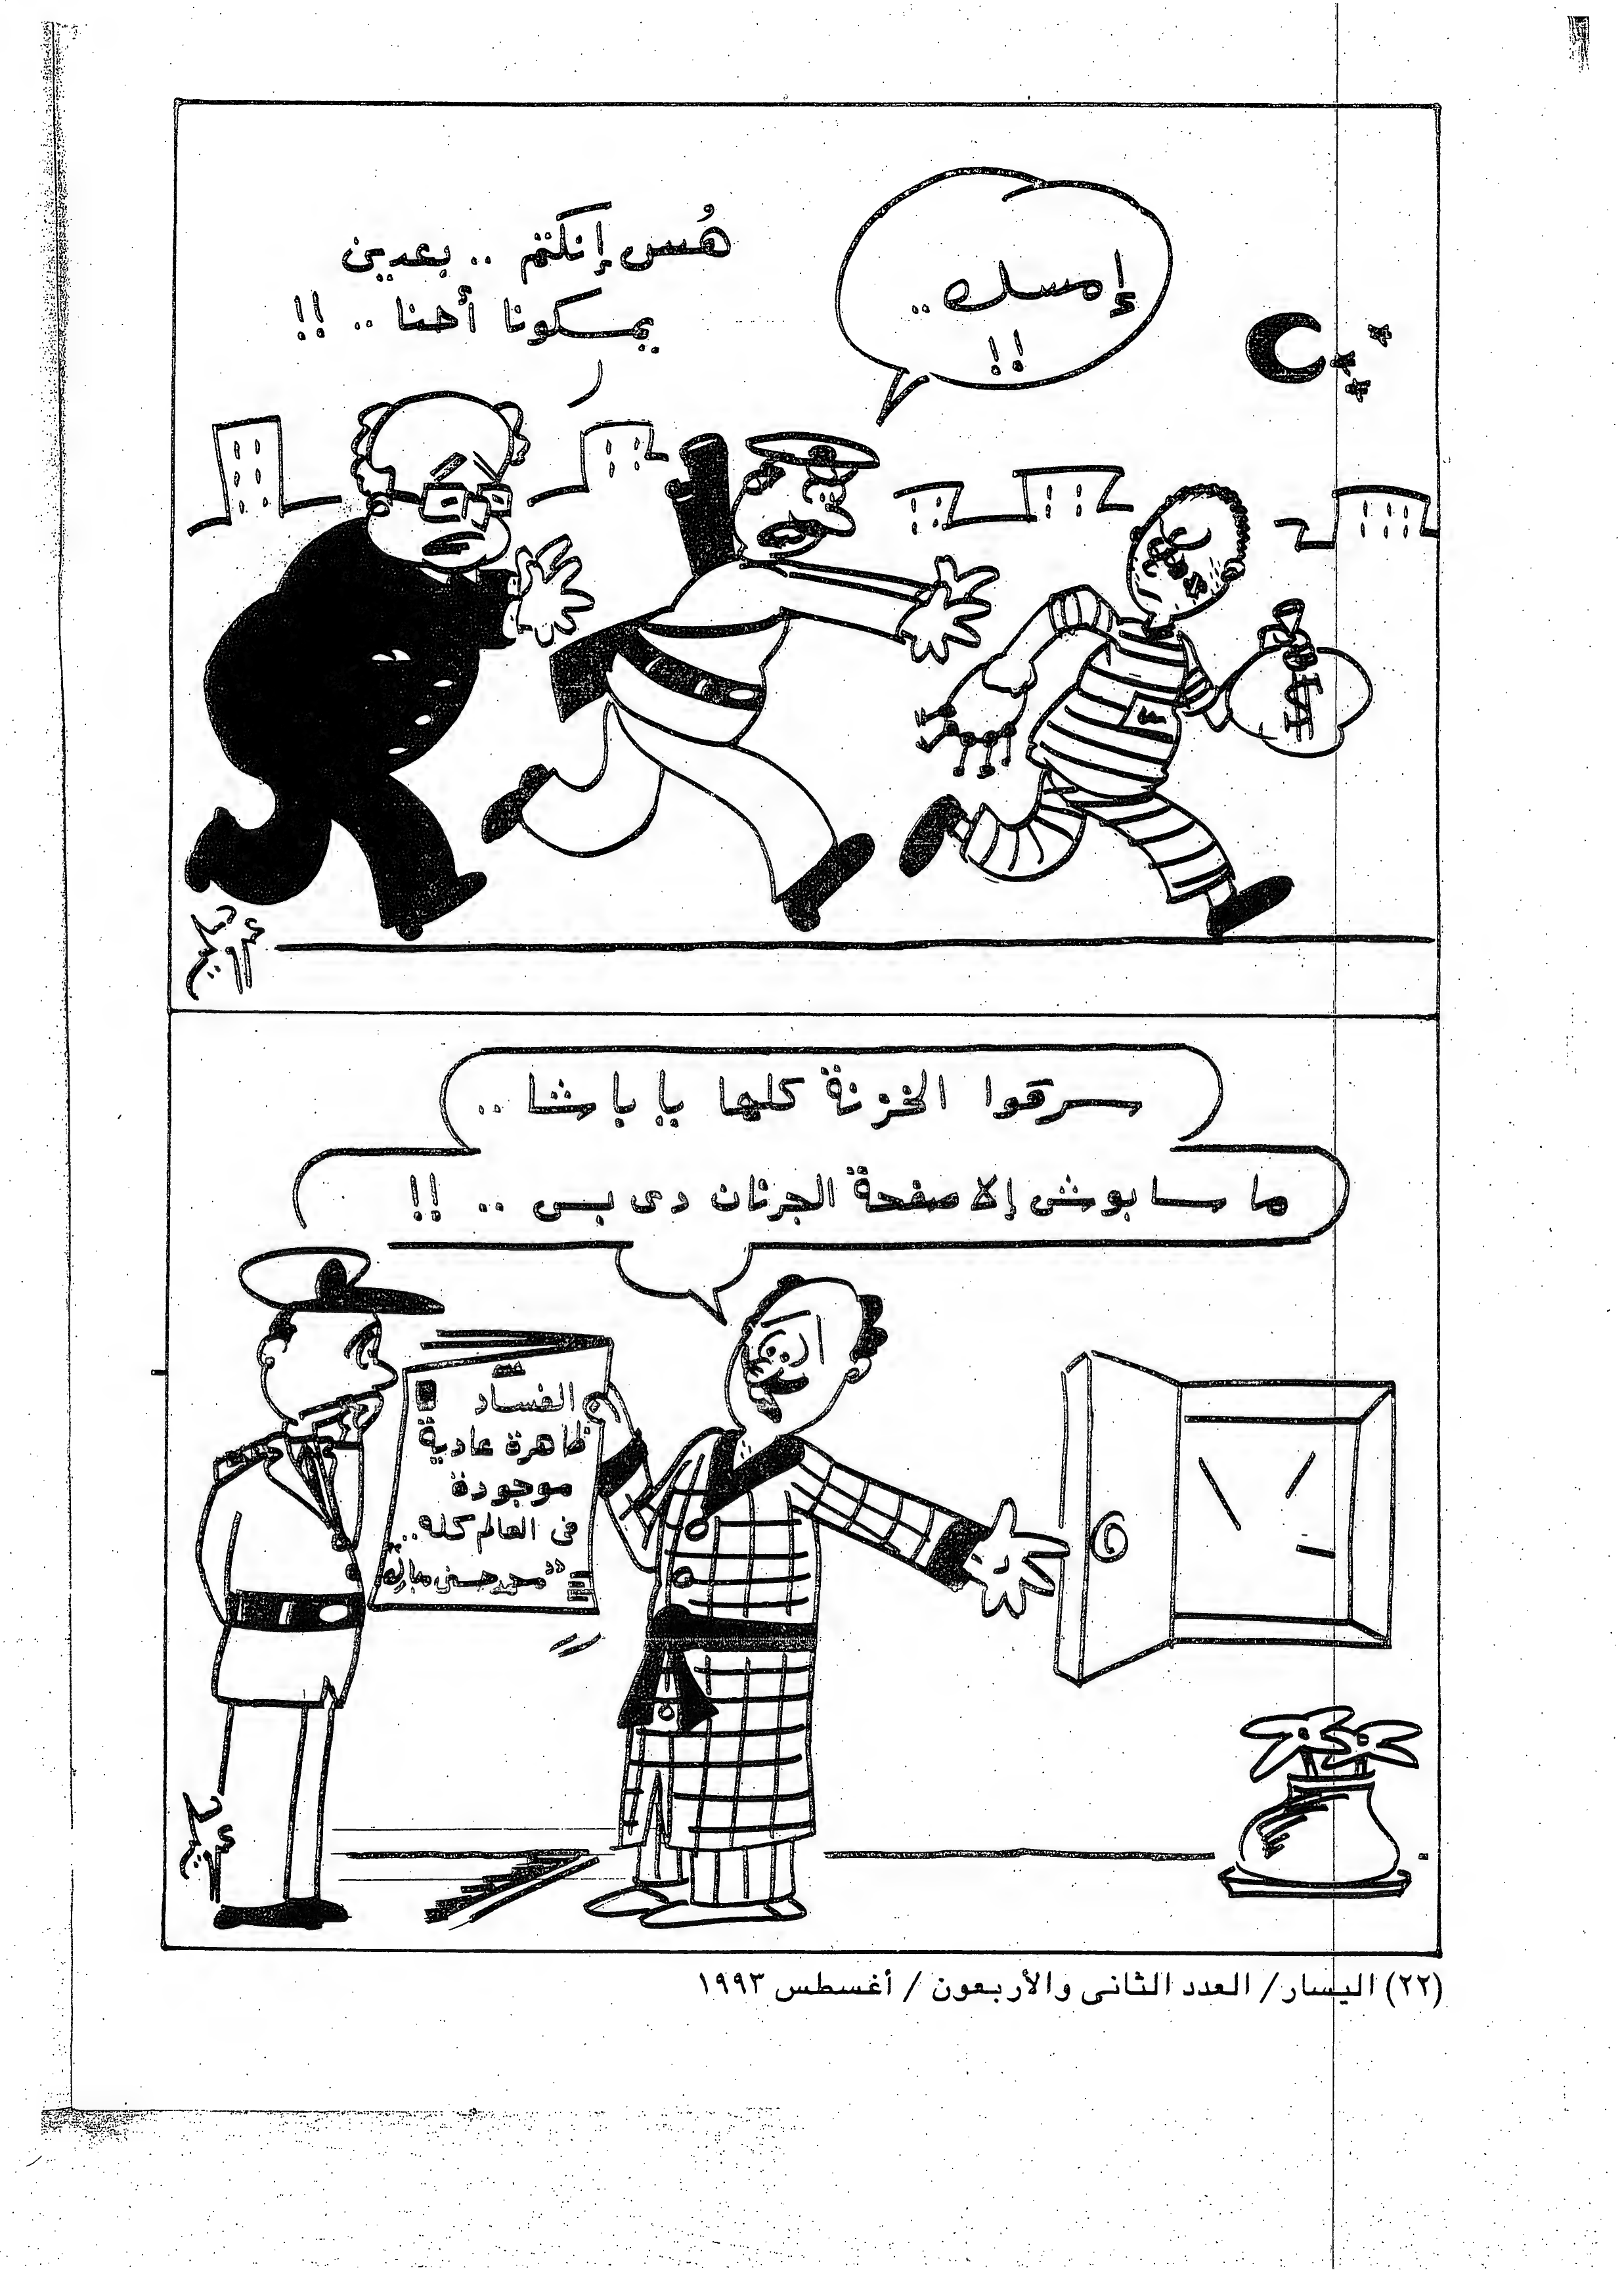 إمسك..
!!
هُس إنكتم .. بعدين
يمسكونا أحنا .. !!
$
سرقوا الخزنة كلها يا باشا ..
ما سابوش إلا صفحة الجرنان دى بس .. !!
الفساد
ظاهرة عادية
موجودة
فى العالم كله..
"محمد حسنى مبارك"
(٢٢) اليسار/ العدد الثانى والأربعون / أغسطس ١٩٩٣